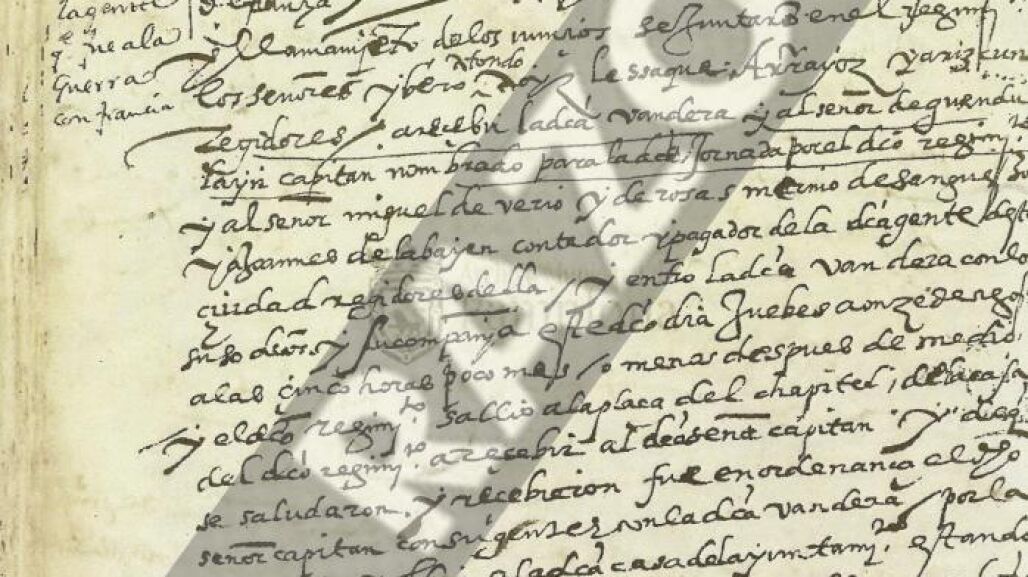 la gente
de panza
q̃ ne ala
guerra
con francia
y llamamj.to de los nuncios se juntarõ en el Regimj.
los señores ybero, atondo, Roy, lessaque, Arrayoz, y ariz cun
Regidores / a recebir la dc̃a vandera y al señor de guendu
layn capitan nombrado para la dc̃a Jornada por el dc̃o regimj.to
y al señor miguel de verio y de rosas merino de sanguesa
y a Joannes de labayen contador y pagador de la dc̃a gente
ciudad regidores della / y entro la dc̃a vandera con lo
suso dc̃os. y su companja este dc̃o dia Juebes a onze de
a las cinco horas poco mas / o menos despues de medio
y el dc̃o regimj.to sallio a la plaça del chapitel, de la casa
del dc̃o regimj.to a recebir al dc̃o señor capitan y
se saludaron, y recebieron fue en ordenança el dc̃o
señor capitan con su gente con la dc̃a vandera / por la
a la dc̃a casa del ayuntamj.to estando